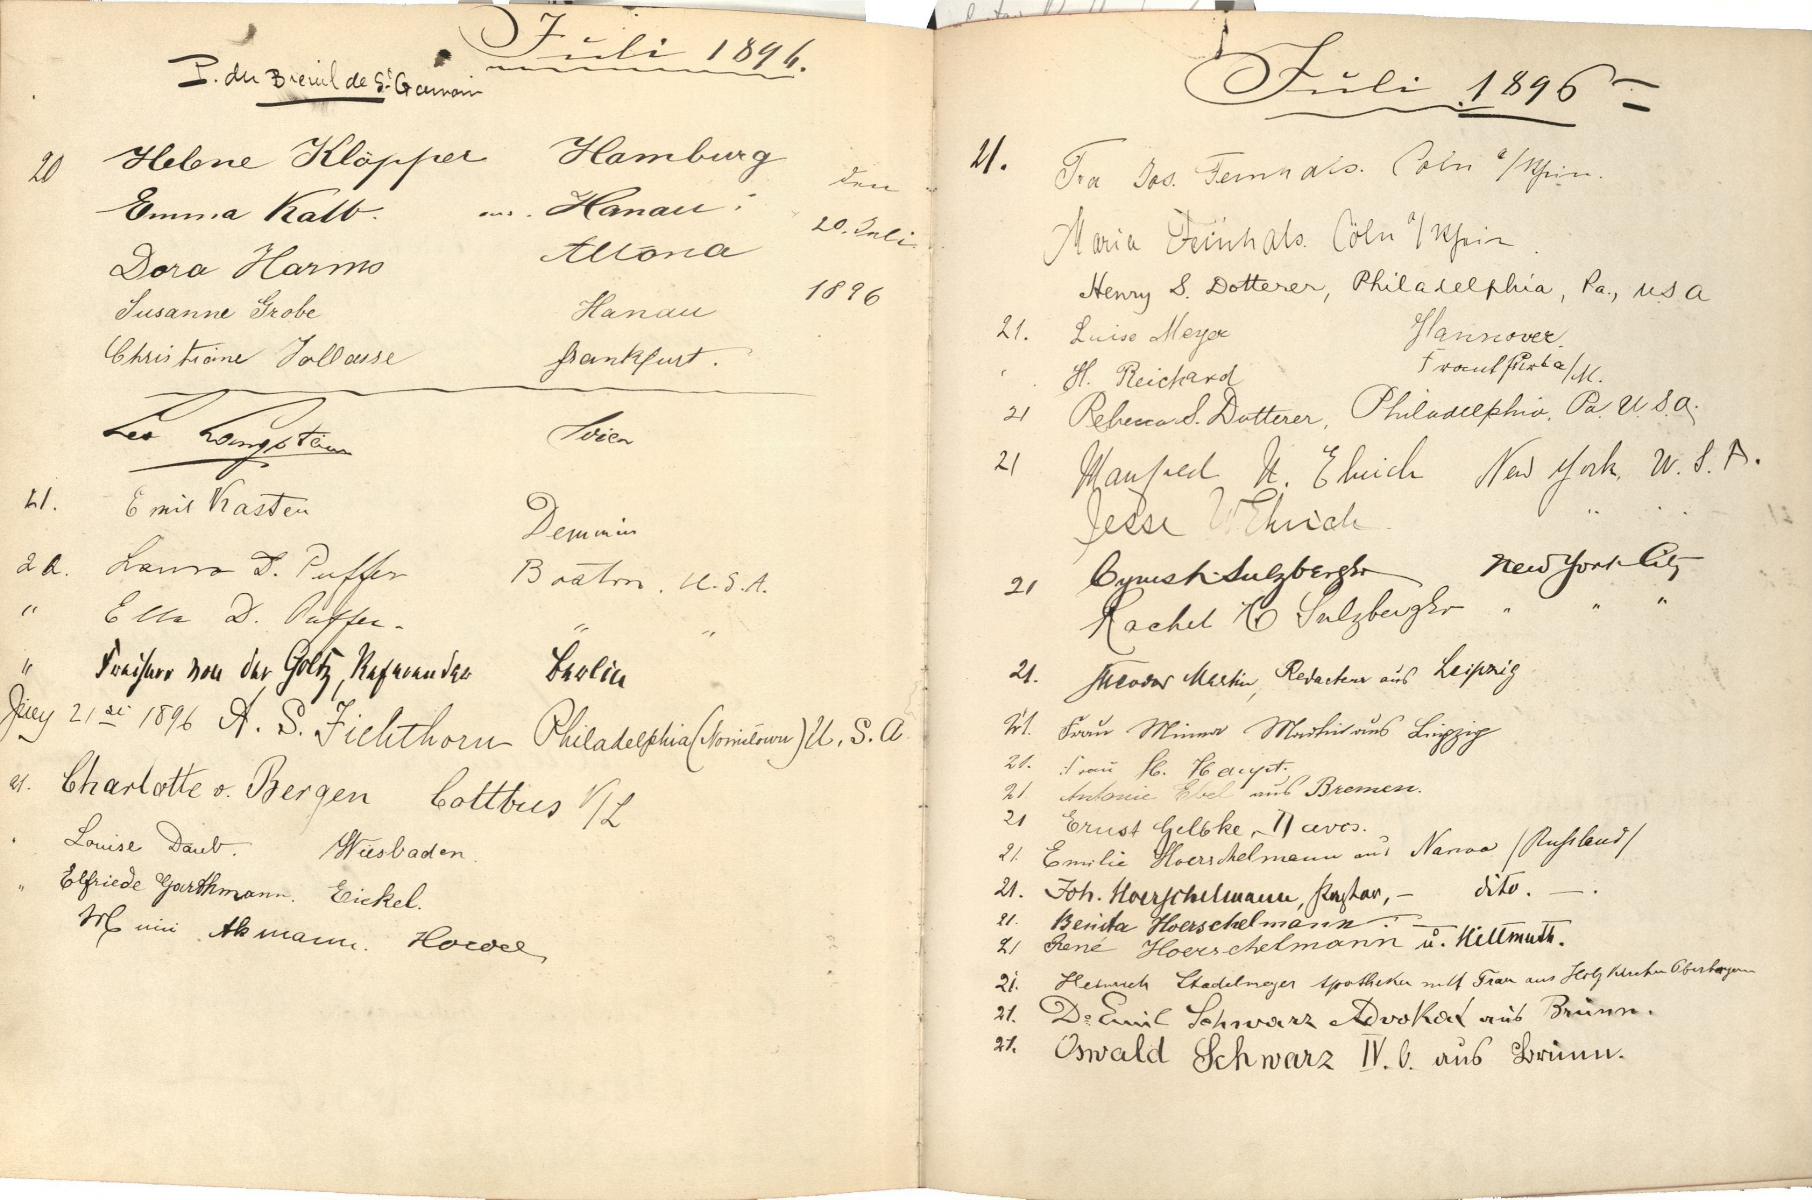 Juli 1896.
P. du Breuil de St Germain
20 Helene Klöpper Hamburg
Emma Kalb. aus. Hanau den
Dora Harms Altona 20. Juli
Susanne Grobe Hanau 1896
Christiane Vollasse Frankfurt.
Leo Langstein Wien
21. Emil Kasten Demmin
21. Laura D. Puffer Boston, U.S.A.
" Ella D. Puffer. " "
" Freiherr von der Goltz, Referendar Berlin
July 21st 1896 A. S. Fichthorn Philadelphia U.S.A
21. Charlotte v. Bergen Cottbus N/L
Louise Daub. Wiesbaden.
" Elfriede Garthmann. Eickel.
Juli 1896
21. Fra Jos. Feinhals. Cöln a/Rhein.
Maria Feinhals. Cöln a/Rhein
Henry S. Dotterer, Philadelphia, Pa., USA
21. Luise Meyer Hannover.
H. Reichard Frankfurt a/M.
21 Rebecca S. Dotterer, Philadelphia, Pa. U.S.A.
21 Manfred W. Ehrich New York, U.S.A.
Jesse W Ehrich " " "
21 Cyrus L. Sulzberger New York City
Rachel H Sulzberger " " "
21. Theodor Martin, Redacteur aus Leipzig
21. Frau Minna Martin aus Leipzig
21. Frau H. Haupt.
21 Antonie Ebel aus Bremen.
21 Ernst Gelbke,
21. Emilie Hoerschelmann aus Narva /Russland/
21. Joh. Hoerschelmann, Pastor, — dito. —.
21. Benita Hoerschelmann
21 René Hoerschelmann u. Hellmuth.
21. Heinrich Stadelmeyer Apotheker mit Frau aus Holzkirchen Oberbayern
21. Dr Emil Schwarz Advokat aus Brünn.
21. Oswald Schwarz IV. b. aus Brünn.